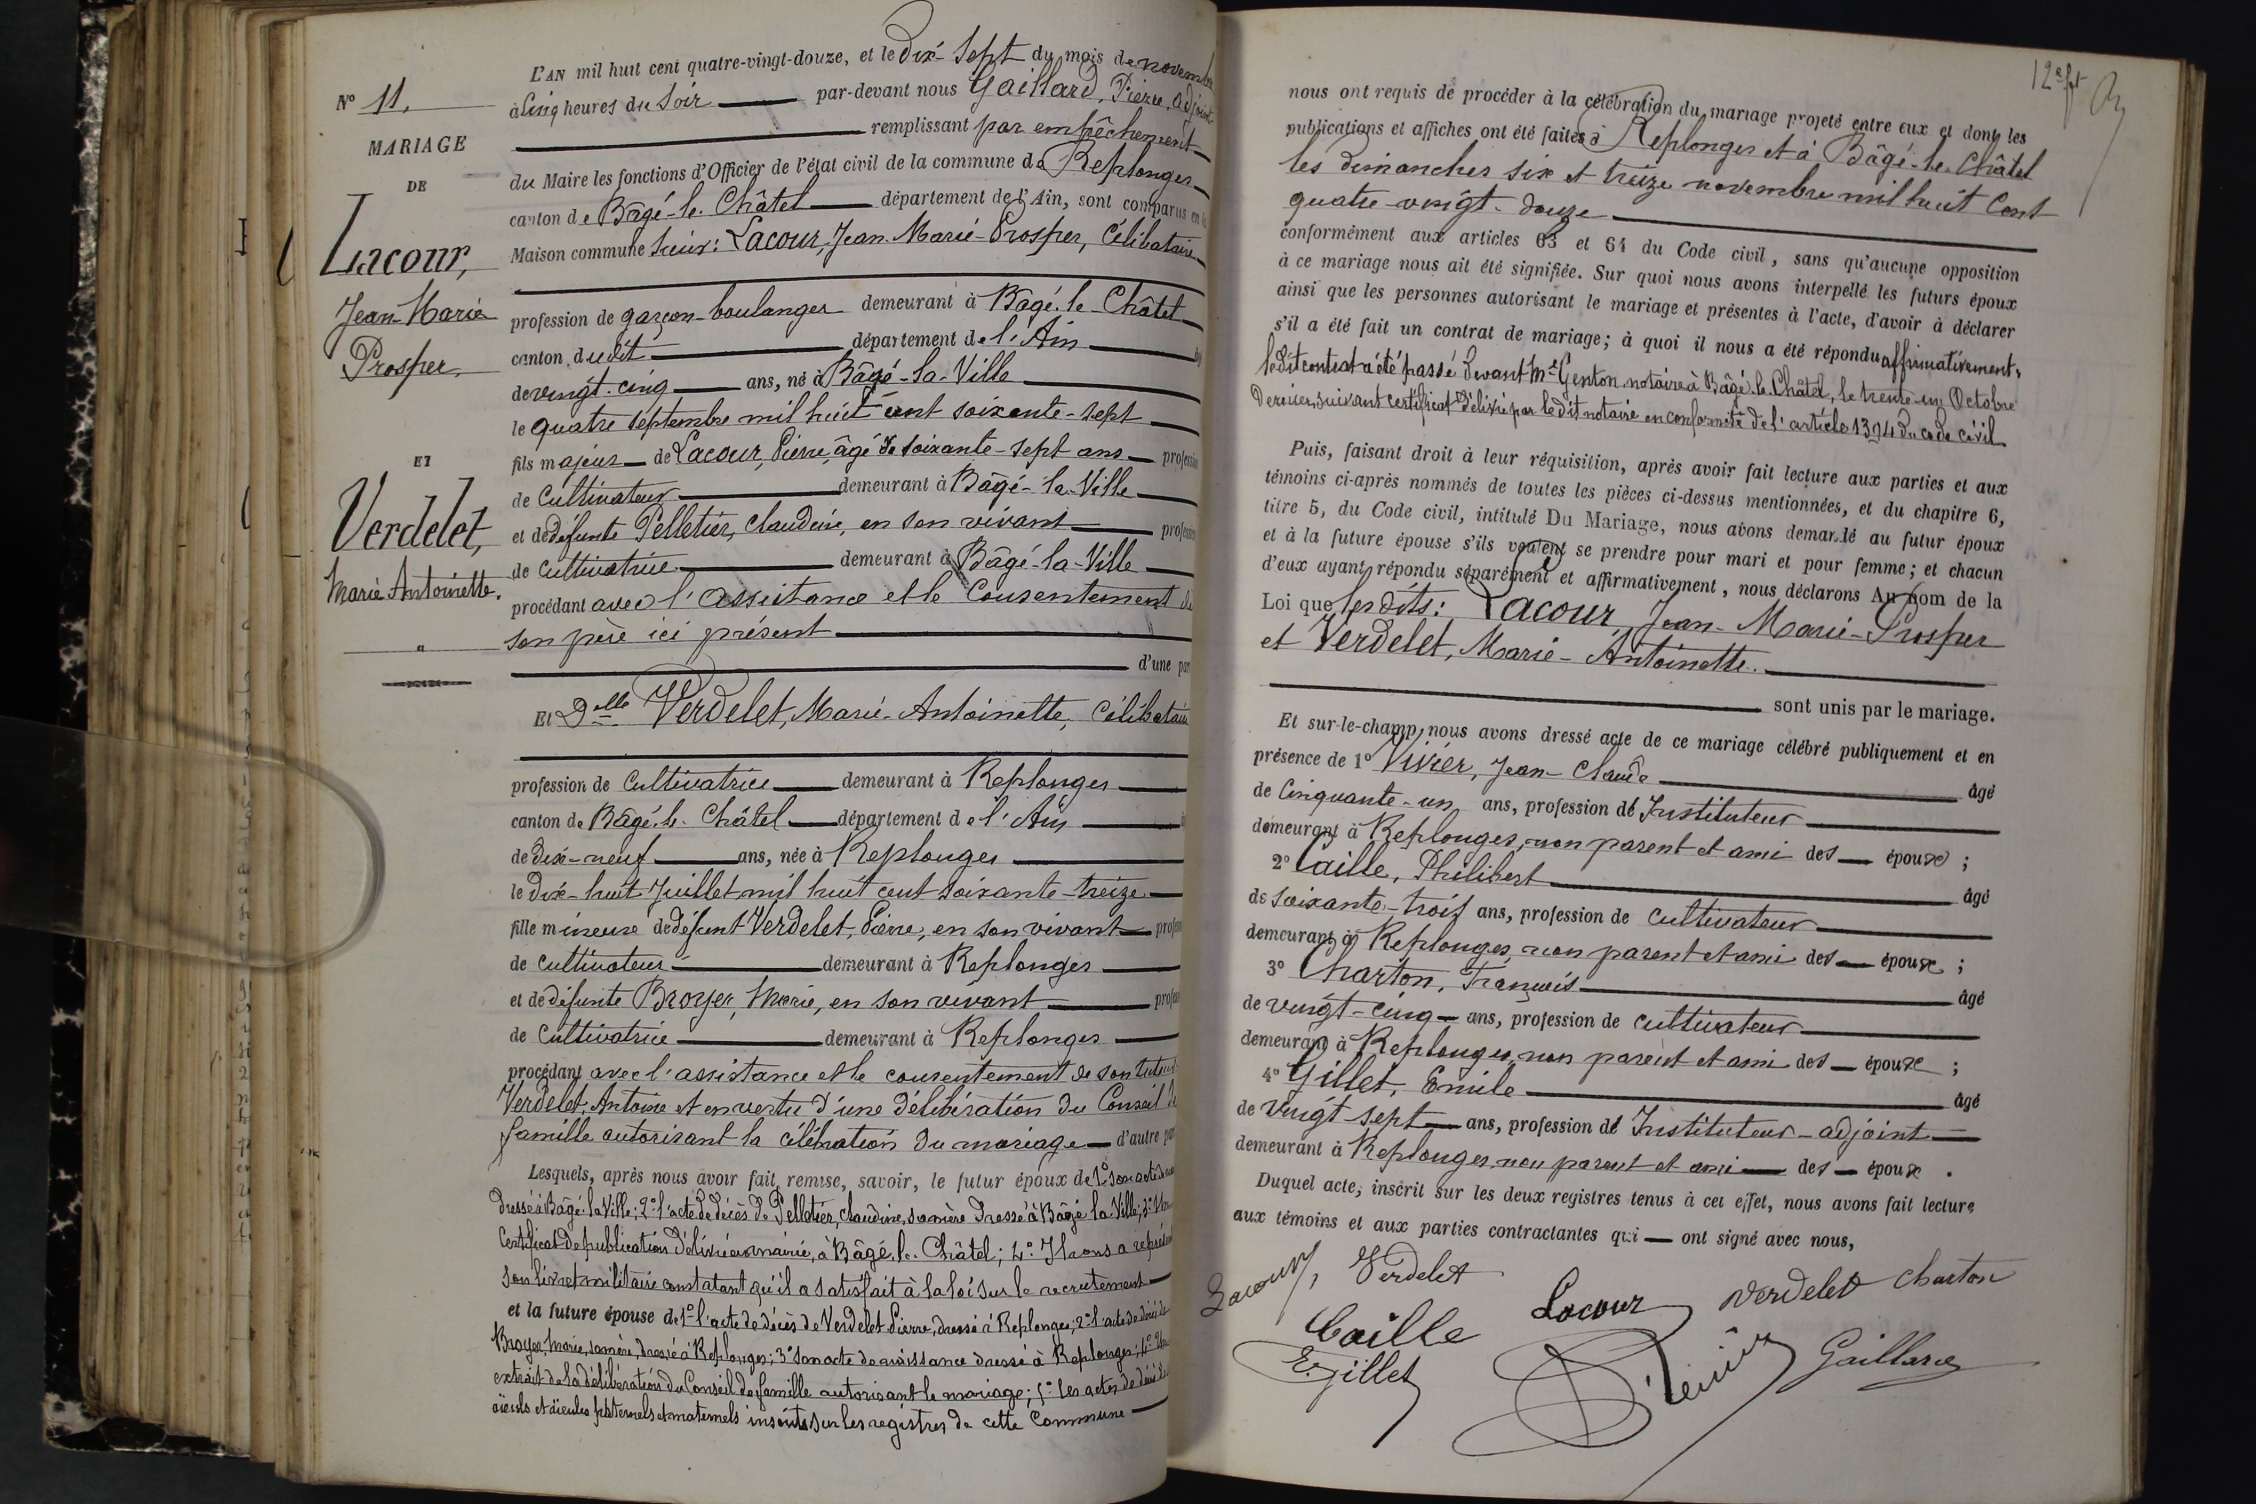 L'AN mil huit cent quatre-vingt-douze, et le Dix-Sept du mois de novembre
N° 11.
à Cinq heures du Soir par-devant nous Gaillard, Pierre, adjoint
remplissant par empêchement
MARIAGE
DE
du Maire les fonctions d'Officier de l'état civil de la commune de Replonges
canton de Bâgé-le-Châtel département de l'Ain, sont comparus en la
Maison commune Sieurs: Lacour, Jean-Marie-Prosper, Célibataire
Lacour,
Jean-Marie
Prosper.
profession de garçon-boulanger demeurant à Bâgé-le-Châtel
canton dudit département de l'Ain
de vingt-cinq ans, né à Bâgé-la-Ville
le quatre septembre mil huit cent soixante-sept
ET
fils majeur de Lacour, Pierre, âgé de soixante-sept ans profession
de Cultivateur demeurant à Bâgé-la-Ville
Verdelet,
Marie Antoinette.
et de défunte Pelletier, Claudine, en son vivant profession
de Cultivatrice demeurant à Bâgé-la-Ville
procédant avec l'assistance et le Consentement de
son père ici présent
d'une par
Et Delle Verdelet, Marie-Antoinette, Célibataire
profession de Cultivatrice demeurant à Replonges
canton de Bâgé-le-Châtel département de l'Ain
de Dix-neuf ans, née à Replonges
le Dix-huit Juillet mil huit cent soixante-treize
fille mineure de défunt Verdelet, Pierre, en son vivant profes
de Cultivateur demeurant à Replonges
et de défunte Broyer, Marie, en son vivant profes
de Cultivatrice demeurant à Replonges
procédant avec l'assistance et le consentement de son tuteur
Verdelet, Antoine et en vertu d'une délibération du Conseil de
famille autorisant la célébration du mariage d'autre par
Lesquels, après nous avoir fait remise, savoir, le futur époux de 1° son acte de
dressé à Bâgé-la-Ville; 2° l'acte de décès de Pelletier, Claudine, sa mère dressé à Bâgé-la-Ville; 3° Un
Certificat de publication délivré en mairie, à Bâgé-le-Châtel; 4° Il nous a représenté
son livret militaire constatant qu'il a satisfait à la loi sur le recrutement
et la future épouse de 1° l'acte de décès de Verdelet Pierre, dressé à Replonges; 2° l'acte de décès de
Broyer, Marie, sa mère, dressé à Replonges; 3° son acte de naissance dressé à Replonges; 4° Un
extrait de la délibération du Conseil de famille autorisant le mariage; 5° les actes de décès des
aïeuls et aïeules paternels et maternels inscrits sur les registres de cette Commune
12e ft
nous ont requis de procéder à la célébration du mariage projeté entre eux et dont les
publications et affiches ont été faites à Replonges et à Bâgé-le-Châtel
les dimanches six et treize novembre mil huit Cent
quatre-vingt-douze
conformément aux articles 63 et 64 du Code civil, sans qu'aucune opposition
à ce mariage nous ait été signifiée. Sur quoi nous avons interpellé les futurs époux
ainsi que les personnes autorisant le mariage et présentes à l'acte, d'avoir à déclarer
s'il a été fait un contrat de mariage; à quoi il nous a été répondu affirmativement,
le dit contrat a été passé devant Me Genton notaire à Bâgé-le-Châtel, le trente-un Octobre
dernier, suivant certificat délivré par le dit notaire en conformité de l'article 1394 du code civil
Puis, faisant droit à leur réquisition, après avoir fait lecture aux parties et aux
témoins ci-après nommés de toutes les pièces ci-dessus mentionnées, et du chapitre 6,
titre 5, du Code civil, intitulé Du Mariage, nous avons demandé au futur époux
et à la future épouse s'ils veulent se prendre pour mari et pour femme; et chacun
d'eux ayant répondu séparément et affirmativement, nous déclarons Au nom de la
Loi que les dits: Lacour, Jean-Marie-Prosper
et Verdelet, Marie-Antoinette.
sont unis par le mariage.
Et sur-le-champ nous avons dressé acte de ce mariage célébré publiquement et en
présence de 1° Vivier, Jean-Claude âgé
de Cinquante-un ans, profession de Instituteur
demeurant à Replonges, non parent et ami des époux;
2° Caille, Philibert âgé
de soixante-trois ans, profession de cultivateur
demeurant à Replonges, non parent et ami des époux;
3° Charton, François âgé
de vingt-cinq ans, profession de cultivateur
demeurant à Replonges, non parent et ami des époux;
4° Gillet, Emile âgé
de vingt sept ans, profession de Instituteur-adjoint
demeurant à Replonges, non parent et ami des époux.
Duquel acte, inscrit sur les deux registres tenus à cet effet, nous avons fait lecture
aux témoins et aux parties contractantes qui ont signé avec nous,
Lacour, Verdelet
Lacour Verdelet Charton
Caille
E. Gillet
Gaillard